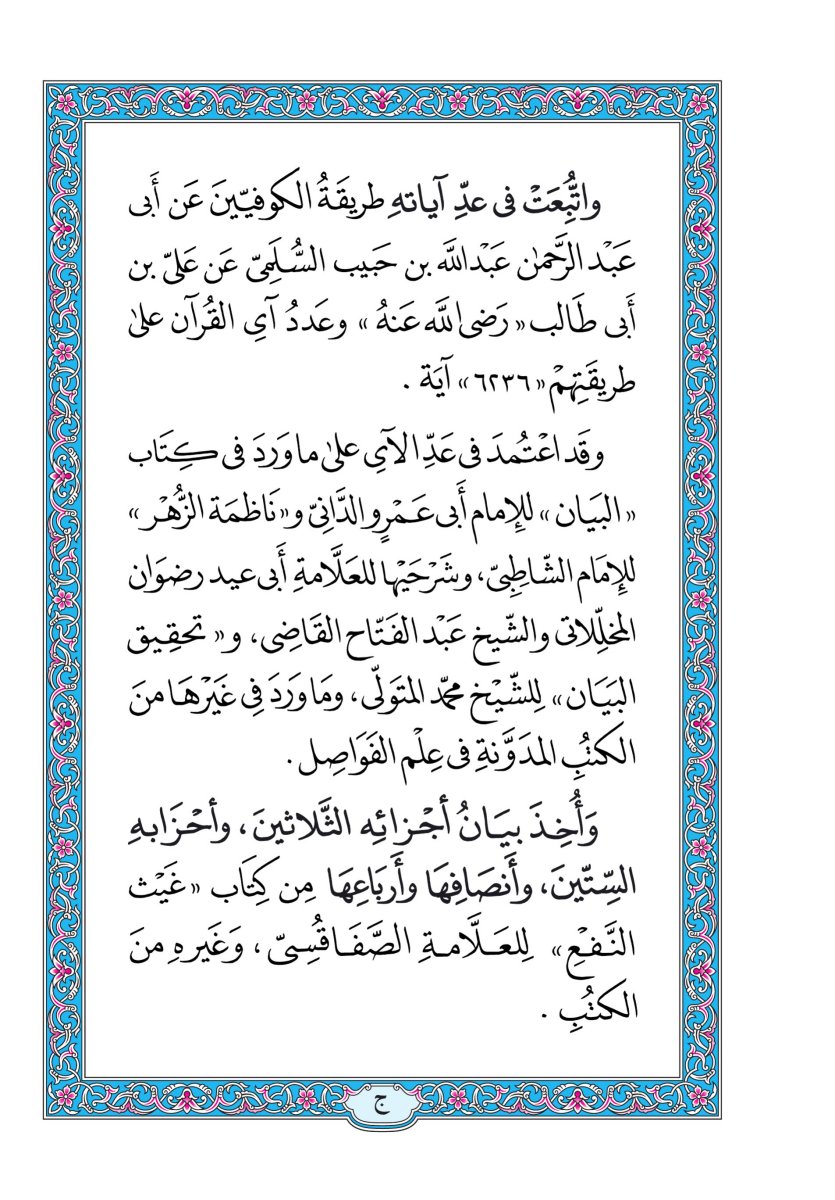 واتُّبِعَتْ فى عدِّ آياتهِ طريقَةُ الكوفيّينَ عَن أَبى
عَبْد الرَّحمٰن عَبْدالله بن حَبيب السُّلَمِىّ عَن عَلىّ بن
أَبى طَالب « رَضى الله عَنهُ » وعَددُ آىِ القُرآن علىٰ
طريقَتِهمْ « ٦٢٣٦ » آيَة .
وقَد اعْتُمدَ فى عَدِّ الآىِ علىٰ ما وَردَ فى كِتَاب
« البيَـان » للإمام أَبى عَـمْرٍو الدَّانىّ و«نَاظمَة الزُّهْـر »
للإمَام الشّاطِبىّ، وشَرْحَيْها للعَلَّامةِ أَبى عيد رضوَان
المخلّلاتى والشّيخ عَبْد الفَتَّاح القَاضِى، و« تحقِـيق
البَيَان» لِلشّيْخ محمّد المتَولّى، ومَا وَردَ فِى غَيْرْهَـا منَ
الكتُبِ المدَوَّنةِ فى عِلْم الفَوَاصِل .
وَأُخِذَ بيَـانُ أجْـزائِه الثَّلاثينَ، وأحْـزَابهِ
السِّتّينَ، وأَنصَافِهَا وأَربَاعِهَا مِن كِتَاب «غَيْث
النَّـفعِ» لِلعَـلَّامـةِ الصَّفَـاقُسِـىّ، وَغَيرهِ منَ
الكتُبِ .
ج